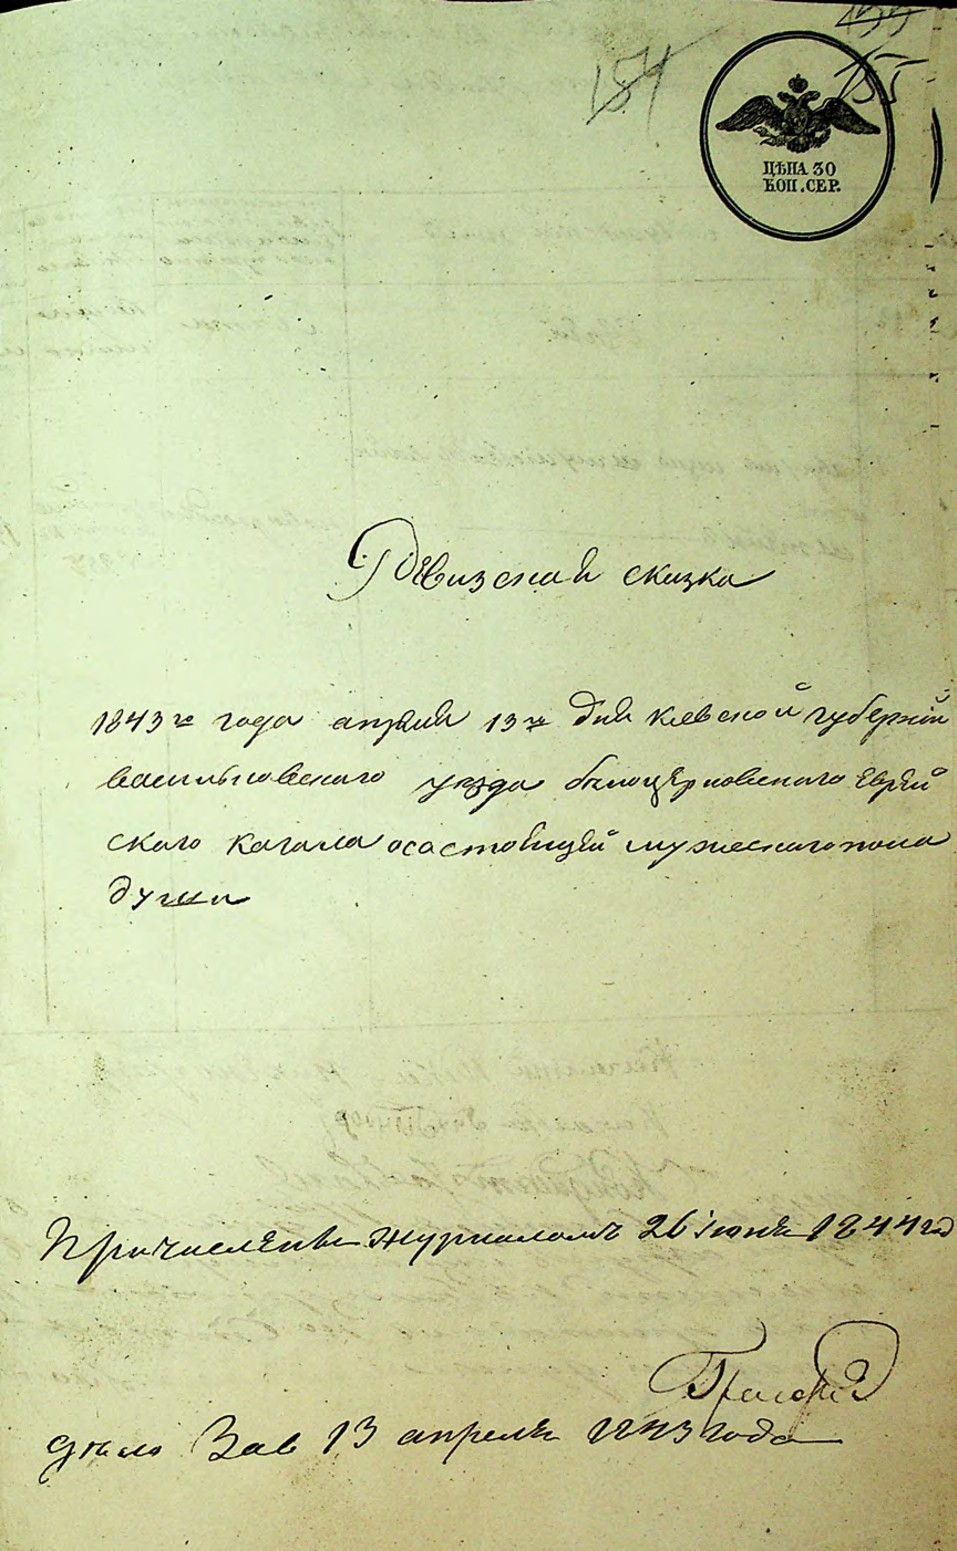 154
155
ЦѢНА 30
КОП. СЕР.
Ревизская сказка
1843го года апреля 13го дня Киевской губернии
васильковского уезда белоцерковского Еврей
ского кагала осостоящей мужеского пола
души
Причислены журналомъ 26 iюня 1844 год
дѣло 13 апреля 1843 года